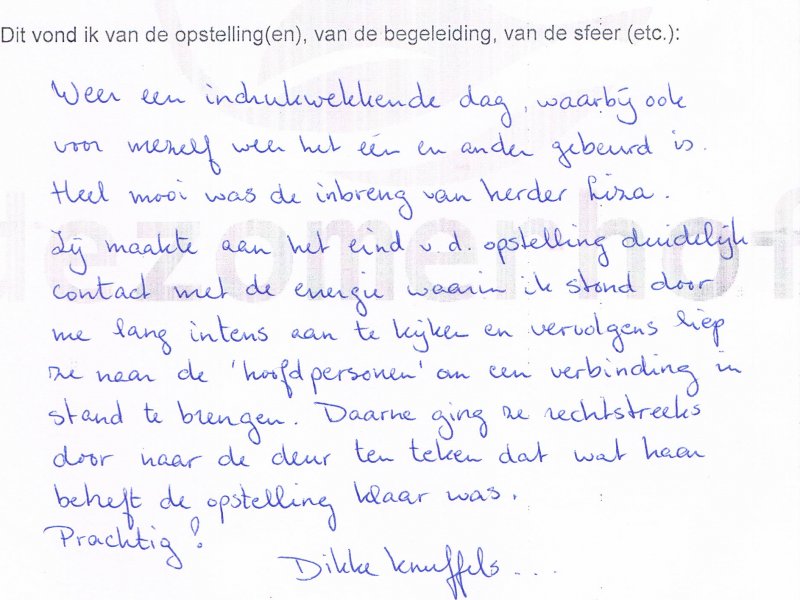 Dit vond ik van de opstelling(en), van de begeleiding, van de sfeer (etc.):
Weer een indrukwekkende dag, waarbij ook
voor mezelf weer het één en ander gebeurd is.
Heel mooi was de inbreng van herder Liza.
Zij maakte aan het eind v.d. opstelling duidelijk
contact met de energie waarin ik stond door
me lang intens aan te kijken en vervolgens liep
ze naar de 'hoofdpersonen' om een verbinding in
stand te brengen. Daarna ging ze rechtstreeks
door naar de deur ten teken dat wat haar
betreft de opstelling klaar was.
Prachtig!
Dikke knuffels...
dezomerhof